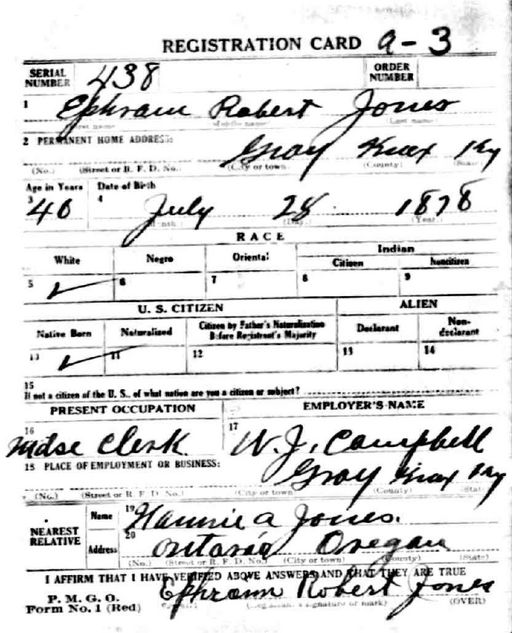 REGISTRATION CARD a-3
SERIAL NUMBER 438 ORDER NUMBER
1 Ephram Robert Jones
2 PERMANENT HOME ADDRESS: Gray Knox Ky
(No.) (Street or R. F. D. No.) (City or town) (County) (State)
Age in Years Date of Birth
3 40 4 July 28 1878
(Year)
RACE
White Negro Oriental Indian
Citizen Noncitizen
5 ✓ 6 7 8 9
U. S. CITIZEN ALIEN
Native Born Naturalized Citizen by Father's Naturalization Before Registrant's Majority Declarant Non-declarant
10 ✓ 11 12 13 14
15
If not a citizen of the U. S., of what nation are you a citizen or subject?
PRESENT OCCUPATION EMPLOYER'S NAME
16 Mdse Clerk 17 W. J. Campbell
18 PLACE OF EMPLOYMENT OR BUSINESS: Gray Knox Ky
(No.) (Street or R. F. D. No.) (City or town) (County)
NEAREST RELATIVE
Name 19 a Jones.
Address 20 Ontario Oregan
(No.) (Street or R. F. D. No.) (City or town) (County) (State)
I AFFIRM THAT I HAVE VERIFIED ABOVE ANSWERS AND THAT THEY ARE TRUE
P. M. G. O.
Form No. 1 (Red) Ephraim Robert Jones
(Registrant's signature or mark) (OVER)